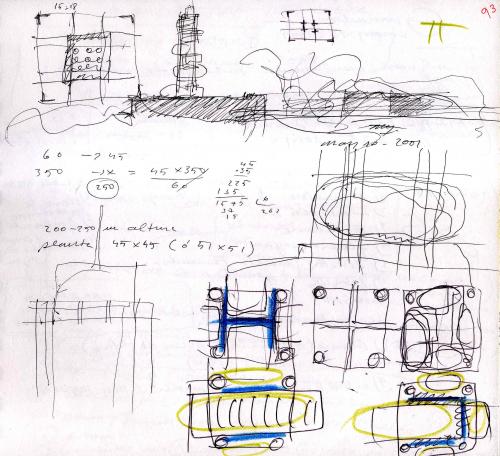 93
15-18
mayo - 2001
60 → 45
350 → x = 45 x 350
60
250
45
35
225
135
1575
60
37
15
262
200-250 m altura
planta 45 x 45 (ó 51 x 51)